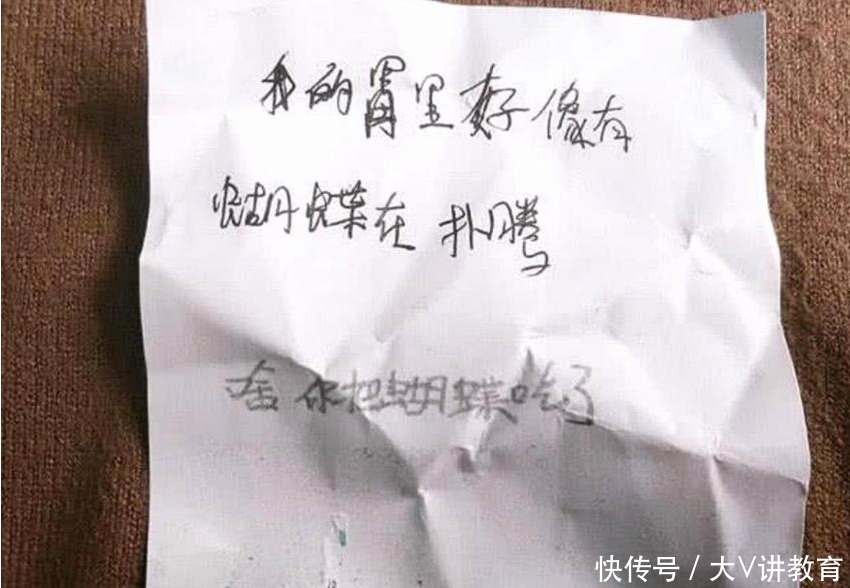 我的胃里好像有
蝴蝶在扑腾
啥你把蝴蝶吃了
快传号/大V讲教育